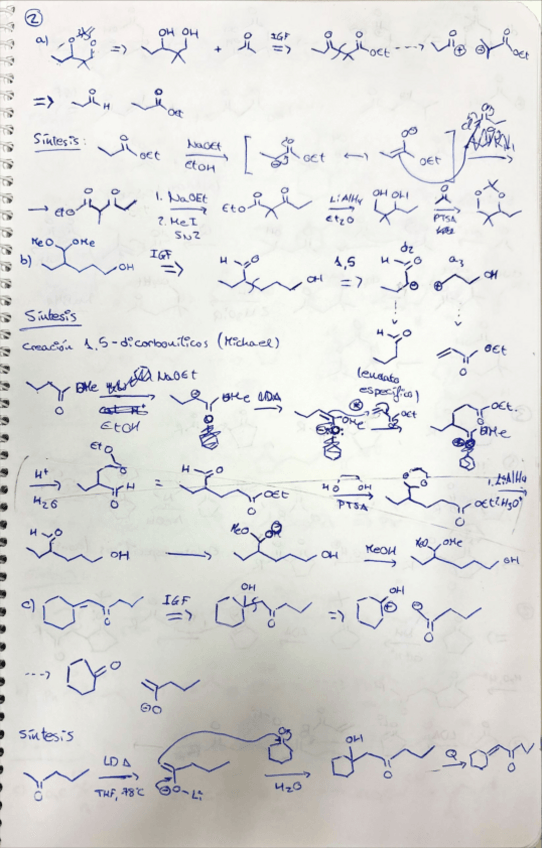 ②
a) OH OH + O IGF => OEt ----> ⊕ ⊖ OEt
=> O H O OEt
Síntesis: O OEt NaOEt EtOH [ O ⊖ OEt <-> O⊖ OEt ]
-> EtO O O 1. NaOEt 2. MeI SN2 EtO O O LiAlH4 Et2O OH OH O PTSA O O
b) MeO OMe OH IGF => H O OH 1,5 => d2 H O ⊖ ⊕ a3 OH
Síntesis
Creación 1,5-dicarbonílicos (Michael) H O (enolato específico) O OEt
OMe O NaOEt EtOH ⊖ OMe O LDA OMe OEt OEt. OMe
H+ H2O EtO O O H = H O OEt O HO OH PTSA O O OEt O 1. LiAlH4 2. H3O+
H O OH -> MeO OH OH MeOH MeO OMe OH
c) O IGF => OH O => OH ⊕ ⊖ O
----> O ⊖O
Síntesis
O LDA THF, 78°C ⊖O-Li O H2O OH O Q O